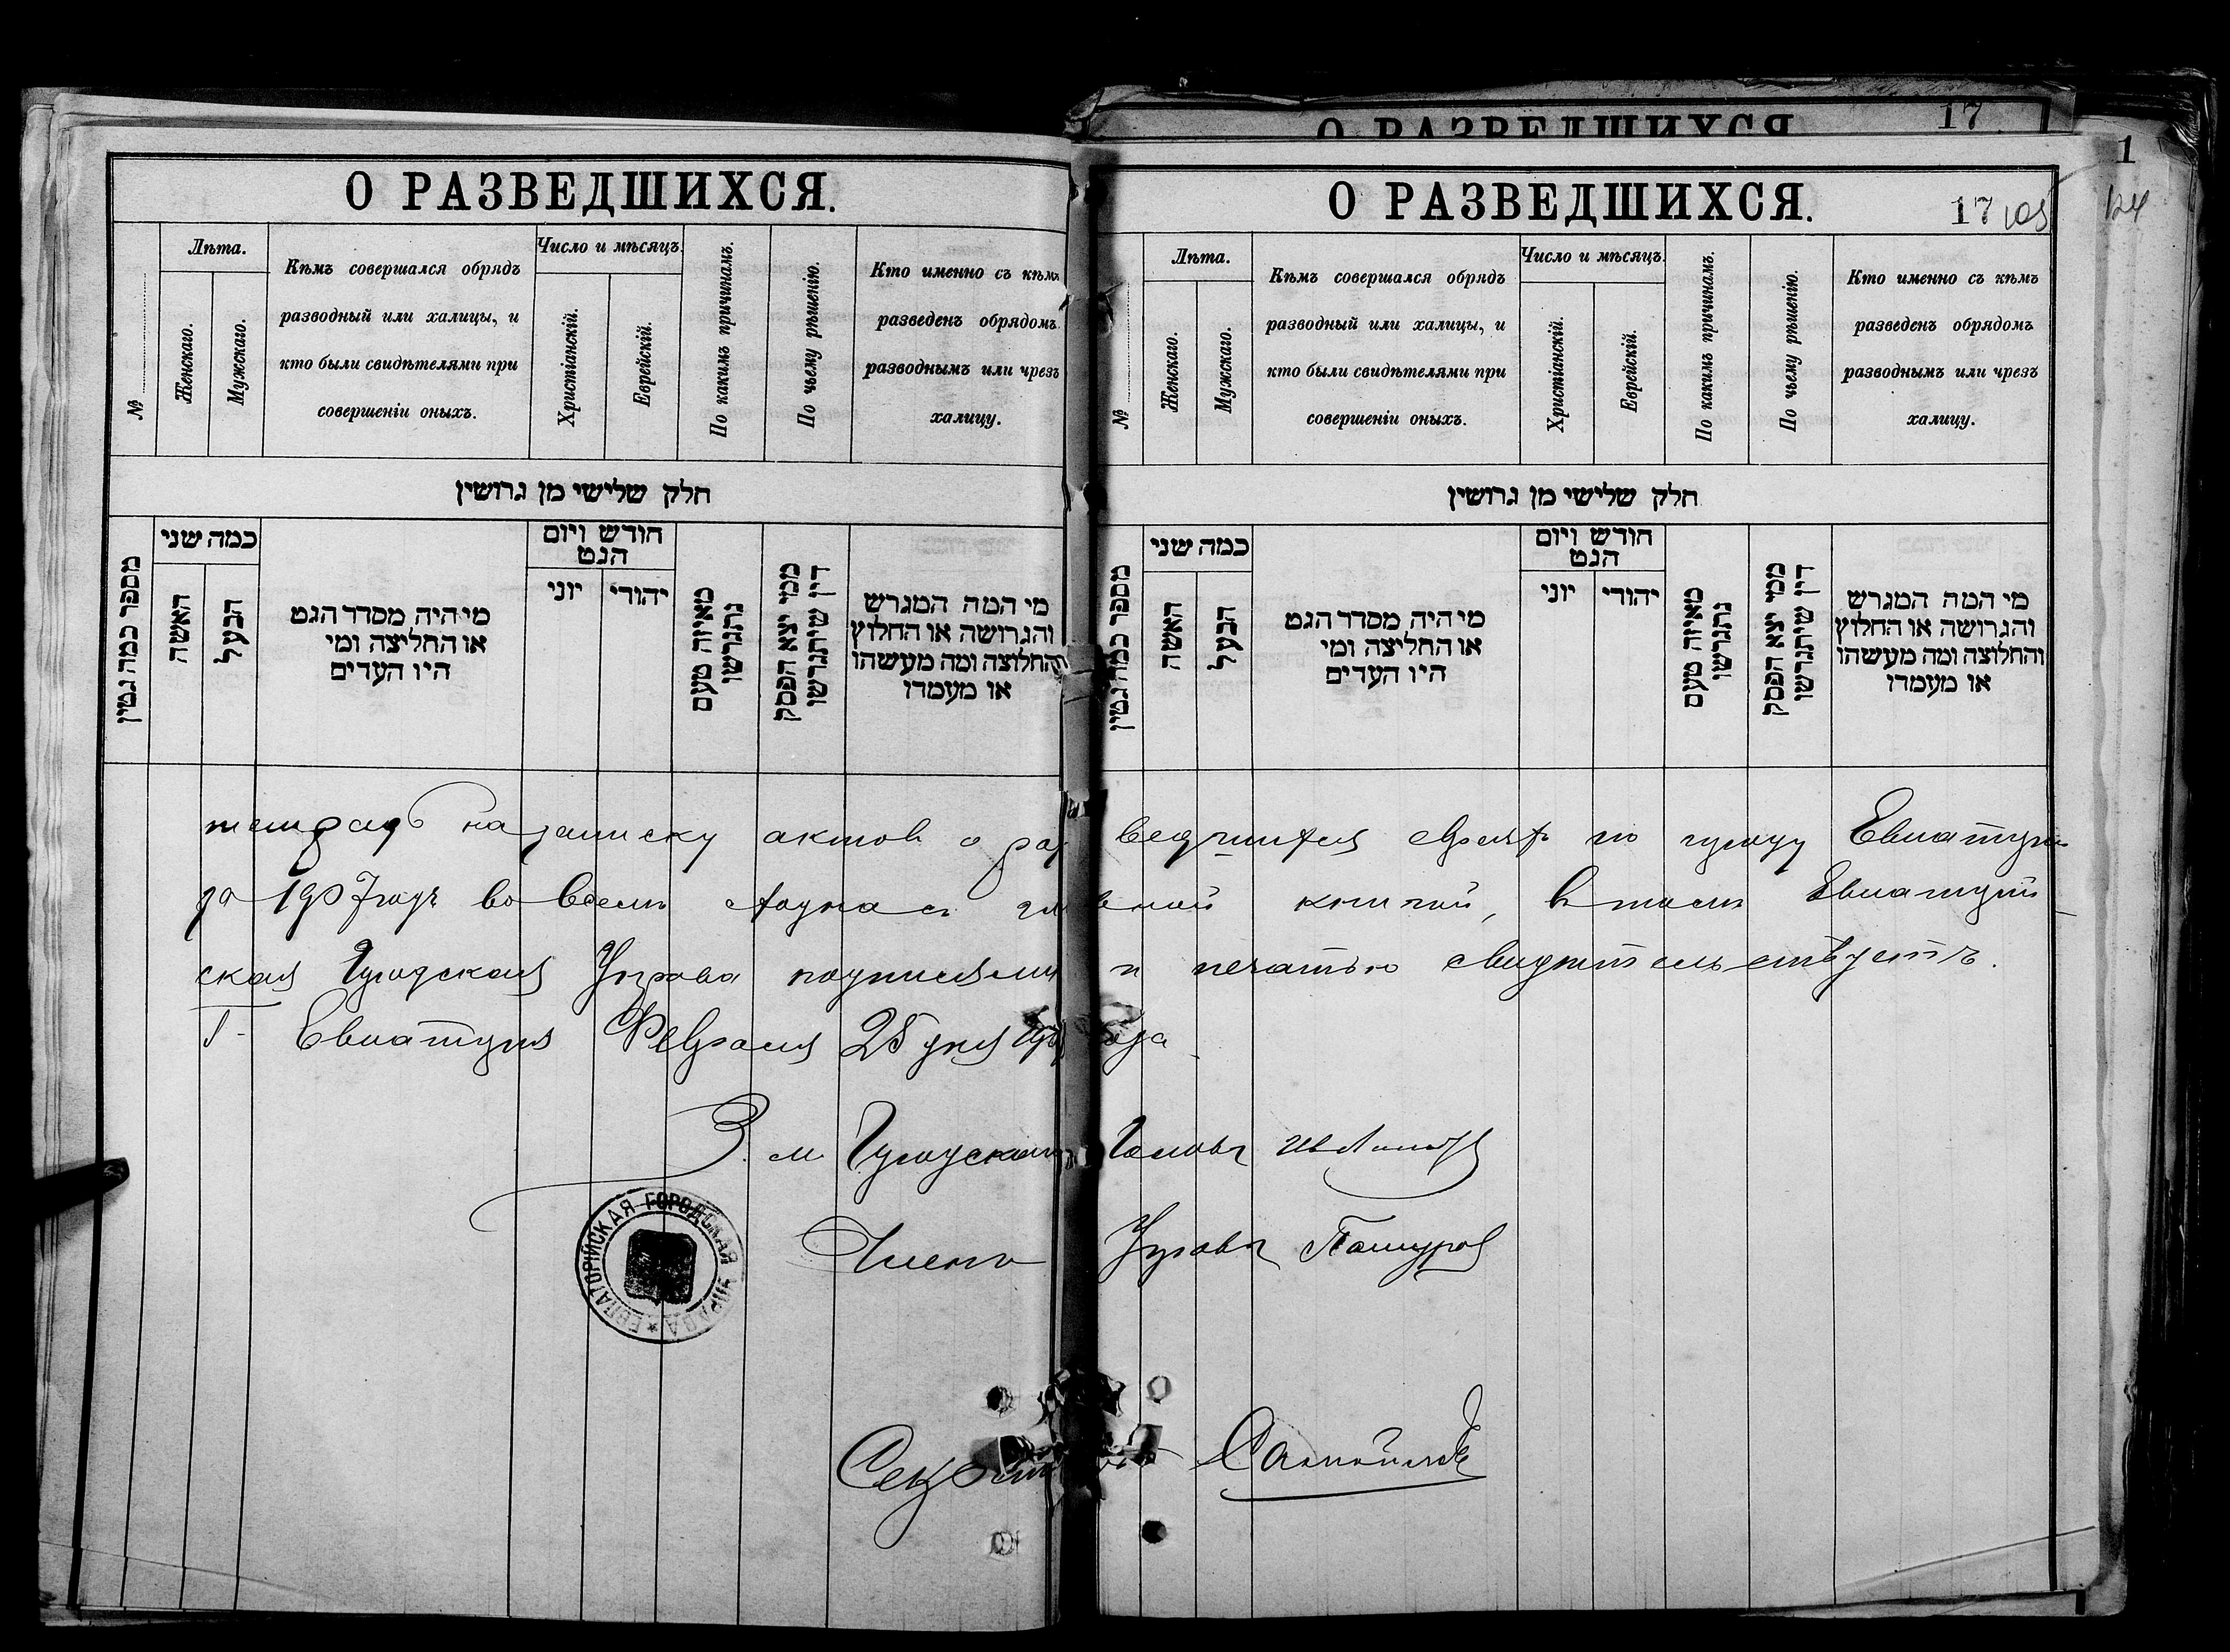 О РАЗВЕДШИХСЯ.
№
Лѣта.
Женскаго.
Мужскаго.
Кѣмъ совершался обрядъ
разводный или халицы, и
кто были свидѣтелями при
совершеніи оныхъ.
Число и мѣсяцъ.
Христіанскій.
Еврейскій.
По какимъ причинамъ.
По чьему рѣшенію.
Кто именно съ кѣмъ
разведенъ обрядомъ
разводнымъ или чрезъ
халицу.
חלק שלישי מן גרושין
מספר כמה גטין
כמה שני
האשה
הבעל
מי היה מסדר הגט
או החליצה ומי
היו העדים
חודש ויום
הגט
יוני
יהודי
מאיזה טעם
נתגרשו
ממי יצא הפסק
דין שיתגרשו
מי המה המגרש
והגרושה או החלוץ
והחלוצה ומה מעשהו
או מעמדו
17
О РАЗВЕДШИХСЯ
1
124
О РАЗВЕДШИХСЯ.
17 105
№
Лѣта.
Женскаго.
Мужскаго.
Кѣмъ совершался обрядъ
разводный или халицы, и
кто были свидѣтелями при
совершеніи оныхъ.
Число и мѣсяцъ.
Христіанскій.
Еврейскій.
По какимъ причинамъ.
По чьему рѣшенію.
Кто именно съ кѣмъ
разведенъ обрядомъ
разводнымъ или чрезъ
халицу.
חלק שלישי מן גרושין
מספר כמה גטין
כמה שני
האשה
הבעל
מי היה מסדר הגט
או החליצה ומי
היו העדים
חודש ויום
הגט
יוני
יהודי
מאיזה טעם
נתגרשו
ממי יצא הפסק
דין שיתגרשו
מי המה המגרש
והגרושה או החלוץ
והחלוצה ומה מעשהו
או מעמדו
тетрадь на записку актов о разведшихся евреях по городу Евпатории
за 1907 годъ во всемъ сходна съ главной книгой, в томъ Евпаторий
ская Городская Управа подписями и печатью свидѣтельствуетъ.
Г. Евпаторія Февраля 25 дня года
З. м. Городского Головы
Членъ Управы
Секретарь Самойловъ
ЕВПАТОРІЙСКАЯ ГОРОДСКАЯ УПРАВА